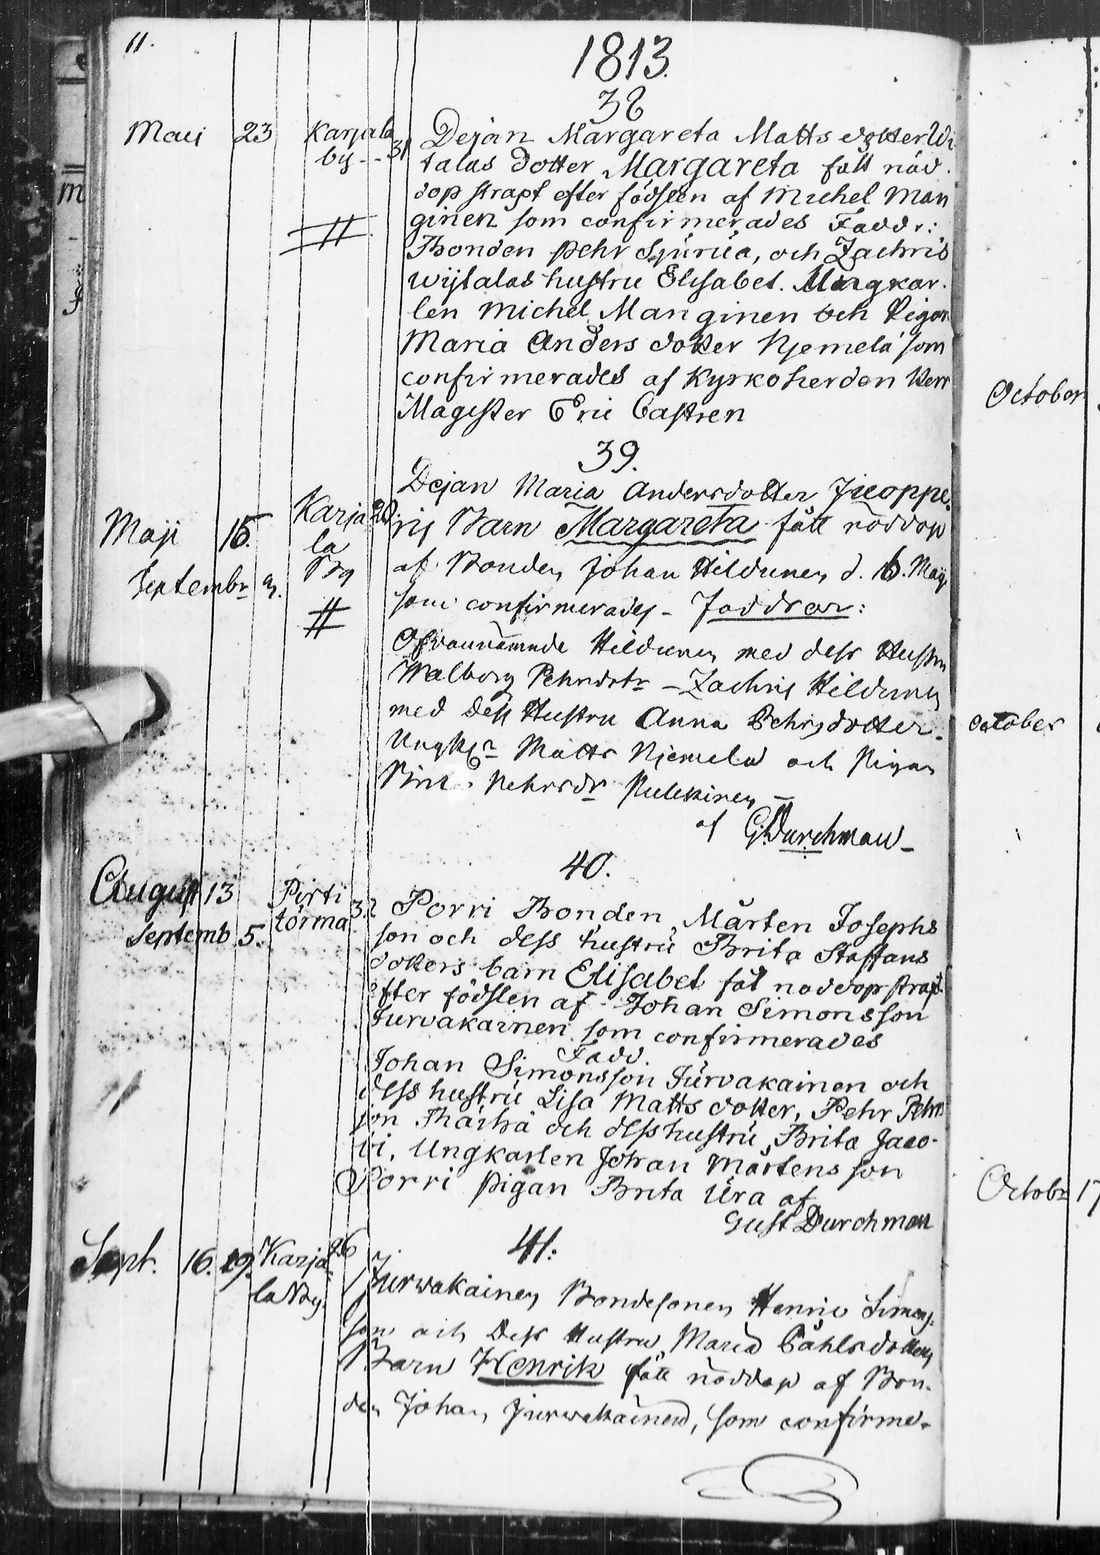 11.
1813.
38
Maij 23 Karjala by 31
Dejan Margareta Matts dotter Wi
talas dotter Margareta fått nöd
dop strapt efter födslen af Michel Man
ginen som confirmerades Faddr:
Bonden Pehr Spürüa, och Zachris
Wijtalas hustru Elisabet. Ungkar
len Michel Manginen och Pigan
Maria Anders dotter Njemelä som
confirmerades af Kyrkoherden Herr
Magister Eric Castren
39.
Maji 15. Septembr 3. Karjala By 28
Dejan Maria Andersdotter Jucoppe
rij Barn Margareta fått nöddop
af Bonden Johan Hildunen d. 16. Maij
som confirmerades - Faddrar:
Ofvannämnde Hildunen med dess Hustru
Walborg Pehrsdtr - Zachris Hildunen
med dess Hustru Anna Pehrsdotter.
Ungkn Matts Njemelä och Pigan
Brit Pehrsdr Pulkkinen -
af G. Durchman -
40.
August 13 Septemb 5. Pirtti törmä 32
Porri Bonden, Mårten Josephs
son och dess hustru Brita Staffans
dotters barn Elisabet fåt nöddop strapt
efter födslen af Johan Simonsson
Jurvakainen som confirmerades
Fadd.
Johan Simonsson Jurvakainen och
dess hustru Lisa Matts dotter, Pehr Pehrs
son Thärhä och dess hustru, Brita Jaco-
bi, Ungkarlen Johan Mårtens son
Porri Pigan Brita Ura af
Gust Durchman
41:
Sept. 16. 19. Karjala By 26
Jurwakainen Bondesonen Henric Simons-
son och Dess Hustru Maria Påhlsdotters
Barn Henrik fått nöddop af Bon-
den Johan Jurwakainen, som confirme-
October
October
Octobr 17